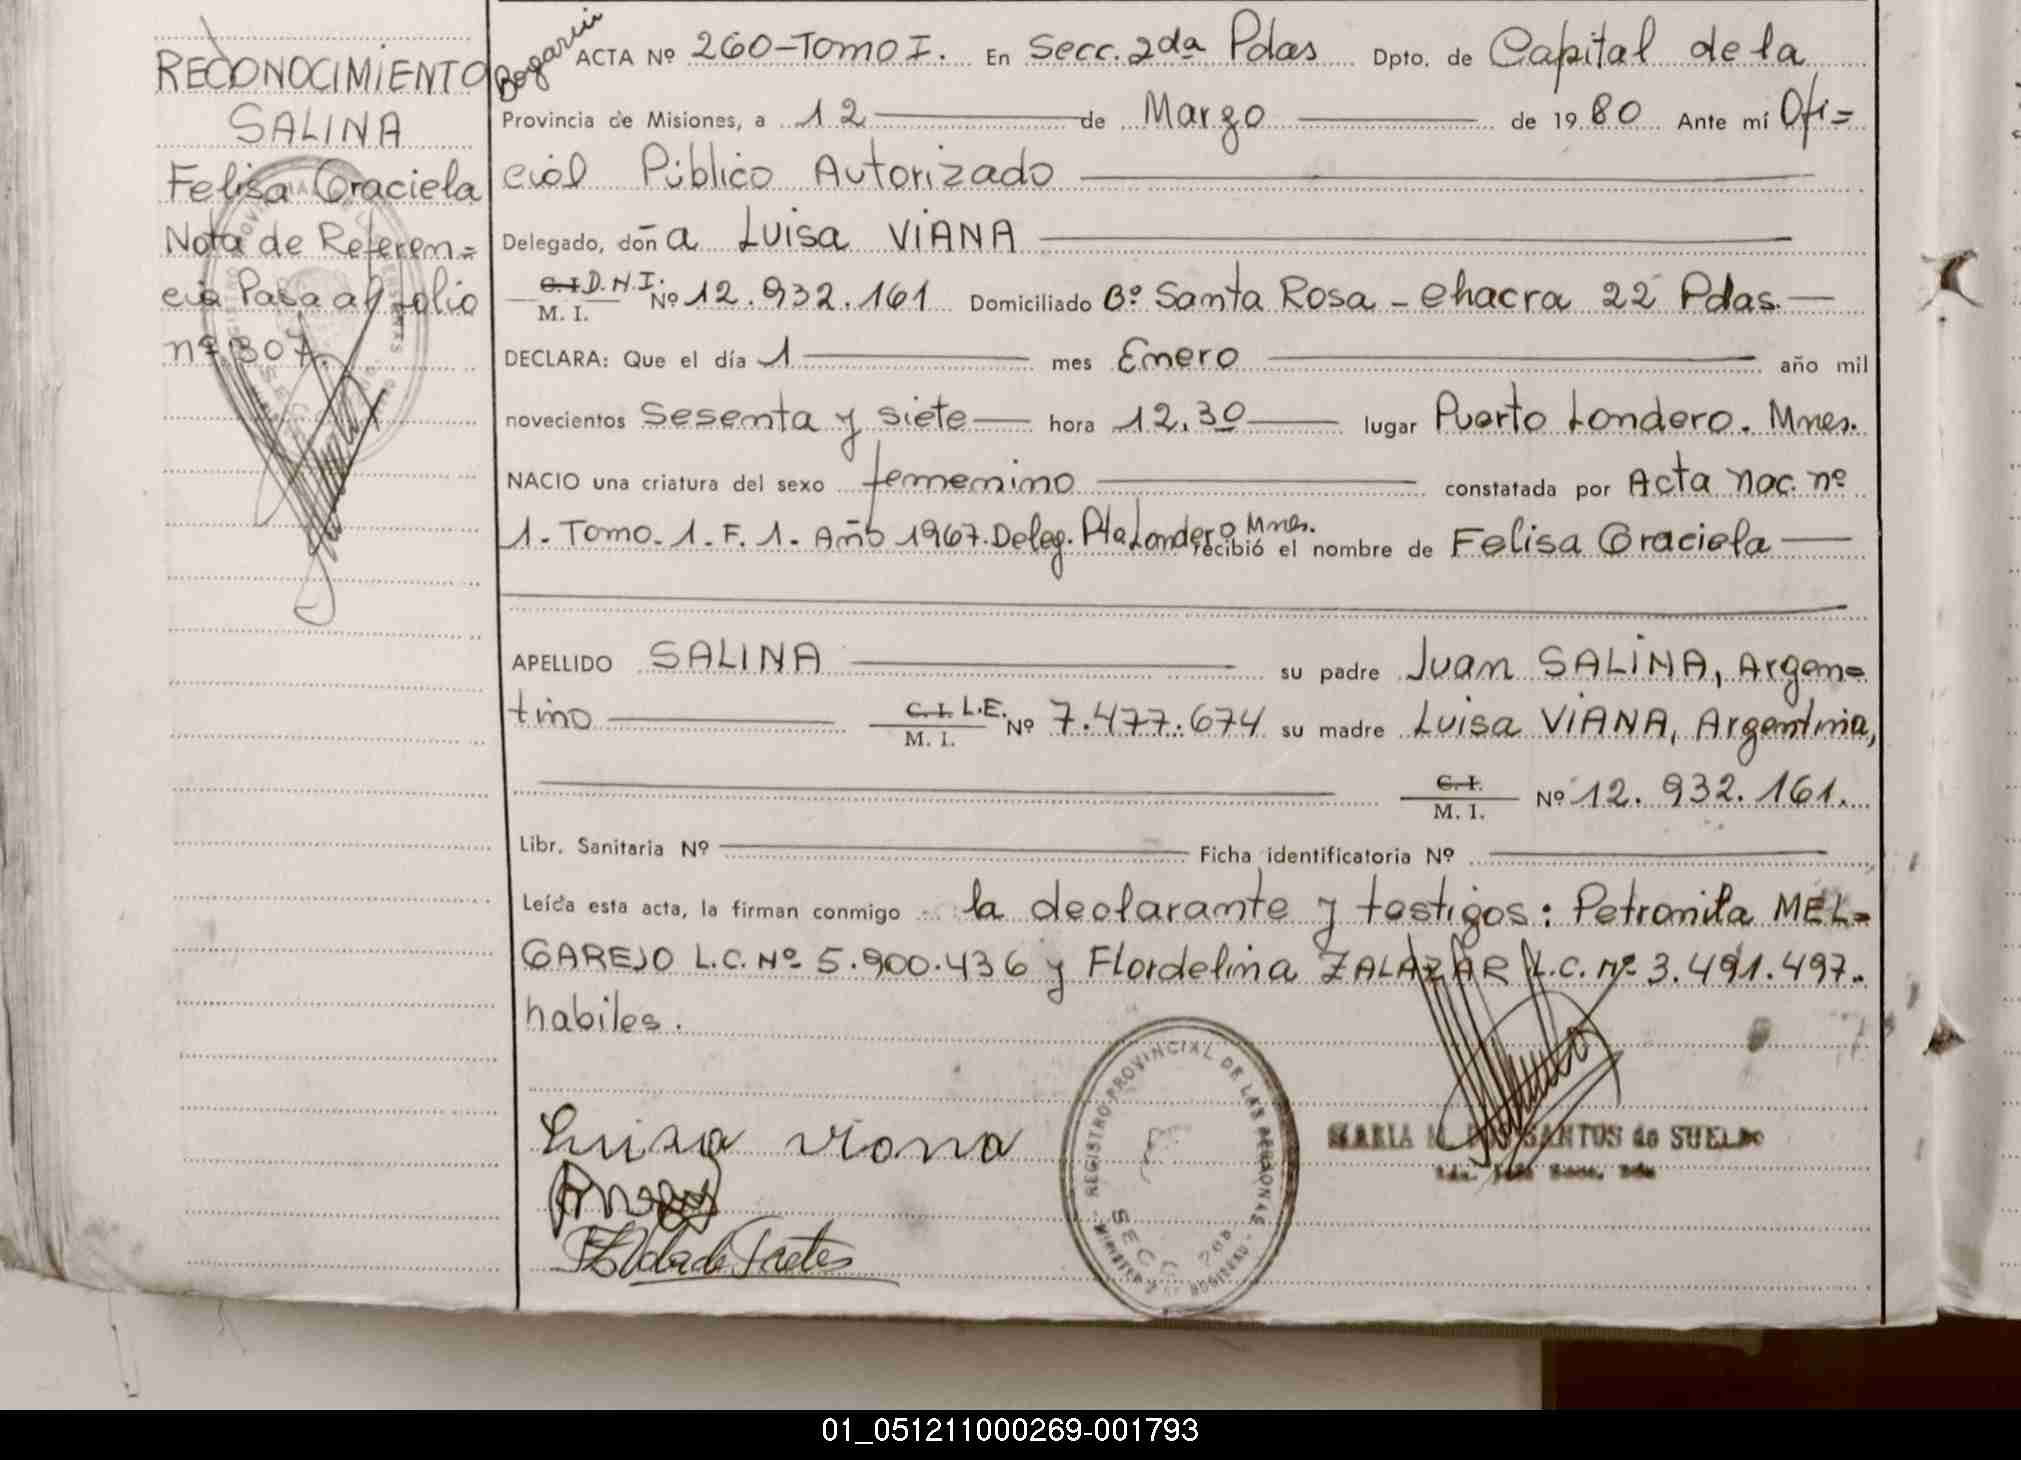 RECONOCIMIENTO
SALINA
Felisa Graciela
Nota de Referen=
cia Pasa al folio
nº 307.
Bogarin
ACTA Nº 260-Tomo I. En Secc. 2da Pdas Dpto. de Capital de la
Provincia de Misiones, a 12 de Marzo de 1980 Ante mí Ofi=
cial Público Autorizado
Delegado, doña Luisa VIANA
C.I. D.N.I.
M. I. Nº 12.932.161 Domiciliado Bº Santa Rosa - chacra 22 Pdas.
DECLARA: Que el día 1 mes Enero año mil
novecientos Sesenta y siete hora 12.30 lugar Puerto Londero. Mnes.
NACIO una criatura del sexo femenino constatada por Acta nac. nº
1. Tomo. 1. F. 1. Año 1967. Deleg. Pto Londero Mnes. recibió el nombre de Felisa Graciela
APELLIDO SALINA su padre Juan SALINA, Argen=
tino C. I. L.E. M. I. Nº 7.477.674 su madre Luisa VIANA, Argentina,
C. I. M. I. Nº 12.932.161.
Libr. Sanitaria Nº Ficha identificatoria Nº
Leída esta acta, la firman conmigo la declarante y testigos: Petronila MEL=
GAREJO L.C. Nº 5.900.436 y Flordelina ZALAZAR L.C. nº 3.491.497.
habiles.
Luisa viana
REGISTRO PROVINCIAL DE LAS PERSONAS
SECC. 2da
MARIA M. DOS SANTOS de SUELDO
01_051211000269-001793